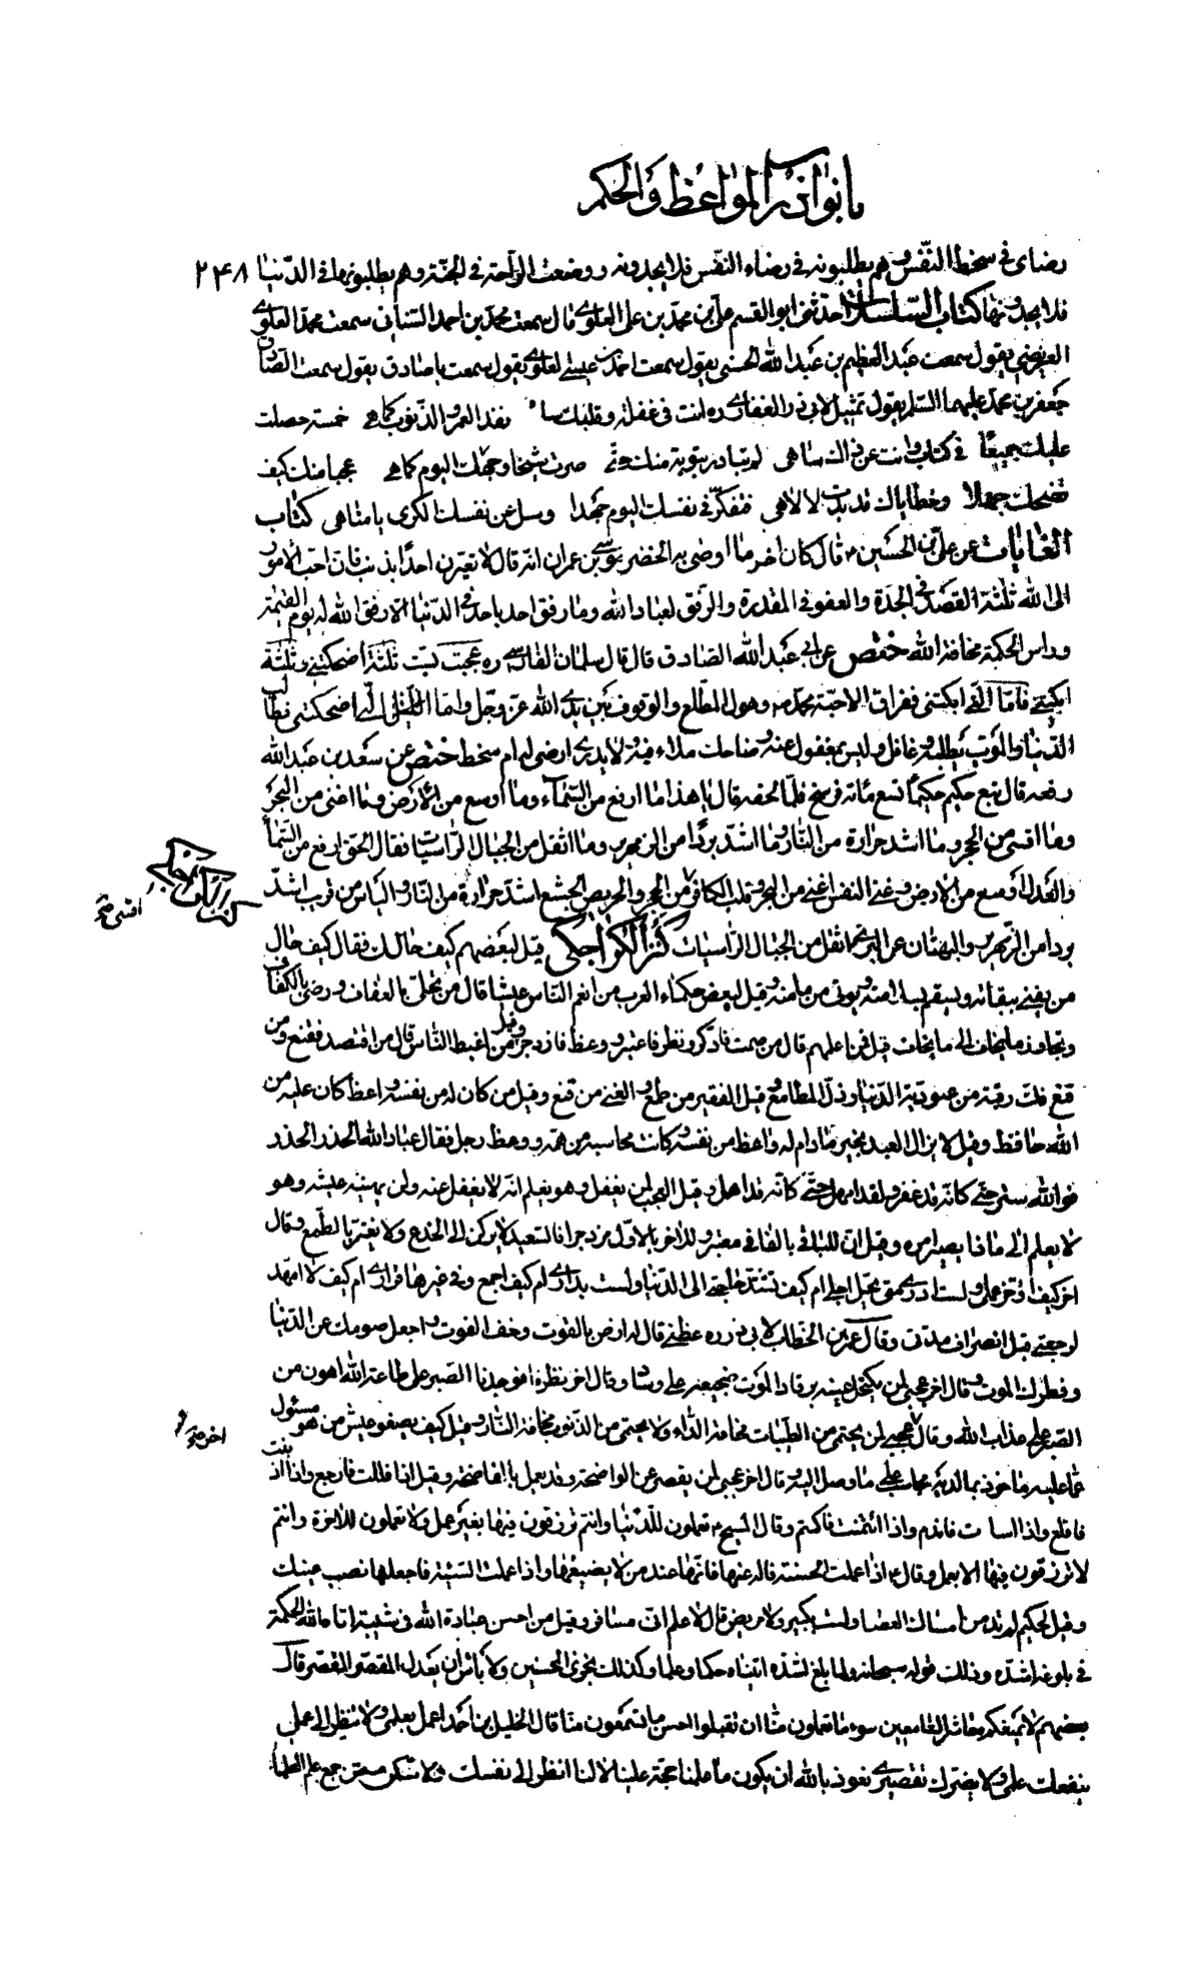 باب نوادر المواعظ والحكم
رضاى فى سخط النّفس وهم يطلبونه فى رضاء النّفس فلا يجدونه ووضعت الرّاحة فى الجنّة وهم يطلبونها فى الدّنيا ٢٤٨
فلا يجدونها كتاب المسلسلات حدّثنى ابو القسم علىّ بن محمّد بن على العلوىّ قال سمعت محمّد بن احمد السنانى سمعت محمّد العلوىّ
العريضى يقول سمعت عبد العظيم بن عبد الله الحسنى يقول سمعت احمد بن عيسى العلوىّ يقول سمعت ابا صادق يقول سمعت الصّادق
جعفر بن محمّد عليهما السّلم يقول تمثيل لابى ذر الغفارى ره انت فى غفلة وقلبك ساه نفد العمر والذّنوب كما هى خمسة حصلت
عليك جميعًا فى كتاب وانت عن ذاك ساهى لم تبادر بتوبة منك حتّى صرت شيخا وحبلك اليوم كما هى عجبا منك كيف
تضحك جهلا وخطاياك قد بدت لالاهى فتفكّر فى نفسك اليوم جهدا وسل عن نفسك الكرى يا متاهى كتاب
الغايات عن علىّ بن الحسين ع قال كان اخر ما اوصى به الخضر موسى بن عمران انّه قال لا تعيّرن احدًا بذنب فان احبّ الامور
الى الله ثلثة القصد فى الجدة والعفو فى المقدرة والرّفق لعباد الله وما رفق احد باحد فى الدّنيا الّا رفق الله به يوم القيمة
وراس الحكمة مخافة الله ختص عن ابى عبد الله الصّادق قال قال سلمان الفارسى ره عجبت بستّ ثلثة اضحكتنى وثلثة
ابكتنى فامّا الّتى ابكتنى ففراق الاحبّة محمّد ص وهول المطّلع والوقوف بين يدى الله عزّ وجلّ وامّا الّتى اضحكتنى فطالب
الدّنيا والموت يطلبه وغافل وليس بمغفول عنه وضاحك ملاء فيه ولا يدرى ارضى له ام سخط ختص عن سعد بن عبد الله
رفعه قال تبع حكيم حكيمًا تسع مائة فرسخ فلمّا لحقه قال يا هذا ما ارفع من السّمآء وما اوسع من الارض وما اغنى من البحر
وما اقسى من الحجر وما اشد حرارة من النّار وما اشدّ بردًا من الزمهرير وما اثقل من الجبال الرّاسيات فقال الحق ارفع من السّمآء
والعدل اوسع من الارض وغنى النفس اغنى من البحر وقلب الكافر من الحجر والحريص الجشع اشدّ حرارة من النّار والياس من قريب اشدّ
اقسى صح
بردا من الزمهرير والبهتان على البرىء اثقل من الجبال الرّاسيات كنز الكراجكى قيل لبعضهم كيف حالك فقال كيف حال
من يفنى ببقائه ويسقم بسلامته ويؤتى من مامنه وقيل لبعض حكماء العرب من انعم النّاس عيشا قال من تحلّى بالعفاف ورضى بالكفاف
وتجاوز ما يخاف الى ما لا يخاف قيل فمن اعلمهم قال من صمت فادّكر ونظر فاعتبر ووعظ فازدجر وقيل من اغبط النّاس قال من اقتصد فقنع ومن
قنع فكّ رقبته من عبوديّة الدّنيا وذلّ المطامع وقيل الفقير من طمع والغنى من قنع وقيل من كان له من نفسه واعظ كان عليه من
الله حافظ وقيل لا يزال العبد بخير ما دام له واعظ من نفسه وكانت محاسبه من همّه ووعظ رجل فقال عباد الله الحذر الحذر
فوالله ستر حتّى كانّه قد غفر ولقد امهل حتّى كانّه قد اهمل وقيل العجب لمن يغفل وهو يعلم انّه لا يغفل عنه ولمن يهنيه عيشه وهو
لا يعلم الى ماذا يصير امره وقيل انّ للباقى بالفانى معتبر وللآخر بالاوّل مزدجرا فالسّعيد لا يركن الى الخدع ولا يغتر بالطّمع وقال
اخر كيف اؤخّر عملى ولست ادرى متى يحل اجلى ام كيف تشتدّ حاجتى الى الدّنيا وليست بدارى ام كيف اجمع وفى غيرها قرارى ام كيف لا امهّد
لرجعتى قبل انصراف مدّتى وقال عمر بن الخطّاب لابى ذر ره عظنى قال له ارض بالقوت وخف الفوت واجعل صومك عن الدّنيا
وفطرك الموت وقال اخر عجبا لمن يكتحل عينه برقاد والموت ضجيعه على وساد وقال اخر نظرنا فوجدنا الصّبر على طاعة الله اهون من
الصّبر على عذاب الله وقال عجبى لمن يحتمى من الطّيّبات مخافة الدّاء ولا يحتمى من الذّنوب مخافة النّار وقيل كيف يصفو عيش من هو مسئول
اخر صح
عمّا عليه ماخوذ بما لديه محاسب على ما وصل اليه وقال اخر عجبى لمن يقصر عن الواضحة وقد يعمل بالفاضحة وقيل اذا قللت فارجع واذا اذنبت
فاقلع واذا اسات فاندم واذا ائتمنت فاكتم وقال المسيح ع تعملون للدّنيا وانتم ترزقون فيها بغير عمل ولا تعملون للآخرة وانتم
لا ترزقون فيها الا بعمل وقال ع اذا عملت الحسنة فاله عنها فانّها عند من لا يضيعها واذا عملت السّيّئة فاجعلها نصب عينك
وقيل لحكيم لم تدمن امساك العصا ولست بكبير ولا مريض قال لاعلم انّى مسافر وقيل من احسن عبادة الله فى شبيبته اتاه الله الحكمة
فى بلوغه اشدّه وذلك قوله سبحانه ولما بلغ اشدّه اتيناه حكما وعلما وكذلك نجزى المحسنين ولا باس ان يعدل المقصّر المقصّر قال
بعضهم لا يمنعكم معاشر السّامعين سوء ما تعملون منّا ان تقبلوا احسن ما تسمعون منّا قال الخليل بن احمد اعمل بعلمى ولا تنظر الى عملى
ينفعك علمى ولا يضررك تقصيرى نعوذ بالله ان يكون ما علمنا حجة علينا لا لنا انظر الى نفسك ولا تكن ممّن جمع علم العلماء